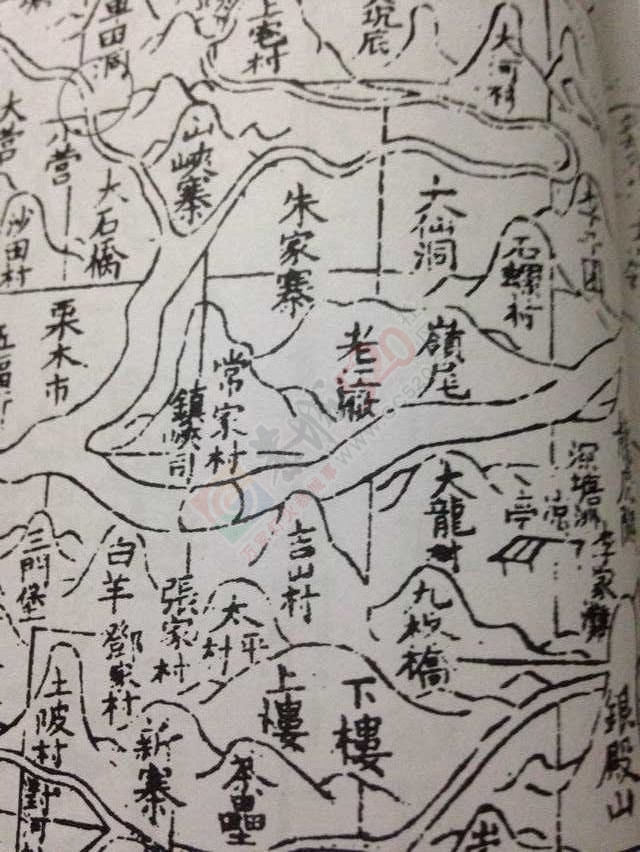 車田洞
上宅村
坑底
大河村
大营
小营
山峽寨
沙田村
大石橋
朱家寨
大仙洞
石螺村
栗木市
老二廠
嶺尾
常家村
鎮峽司
大龍村
凉亭
深塘洲
李家灘
三門堡
白羊
鄧家村
張家村
太平村
吉山村
九板橋
上樓
下樓
土陂村
新寨
銀殿山